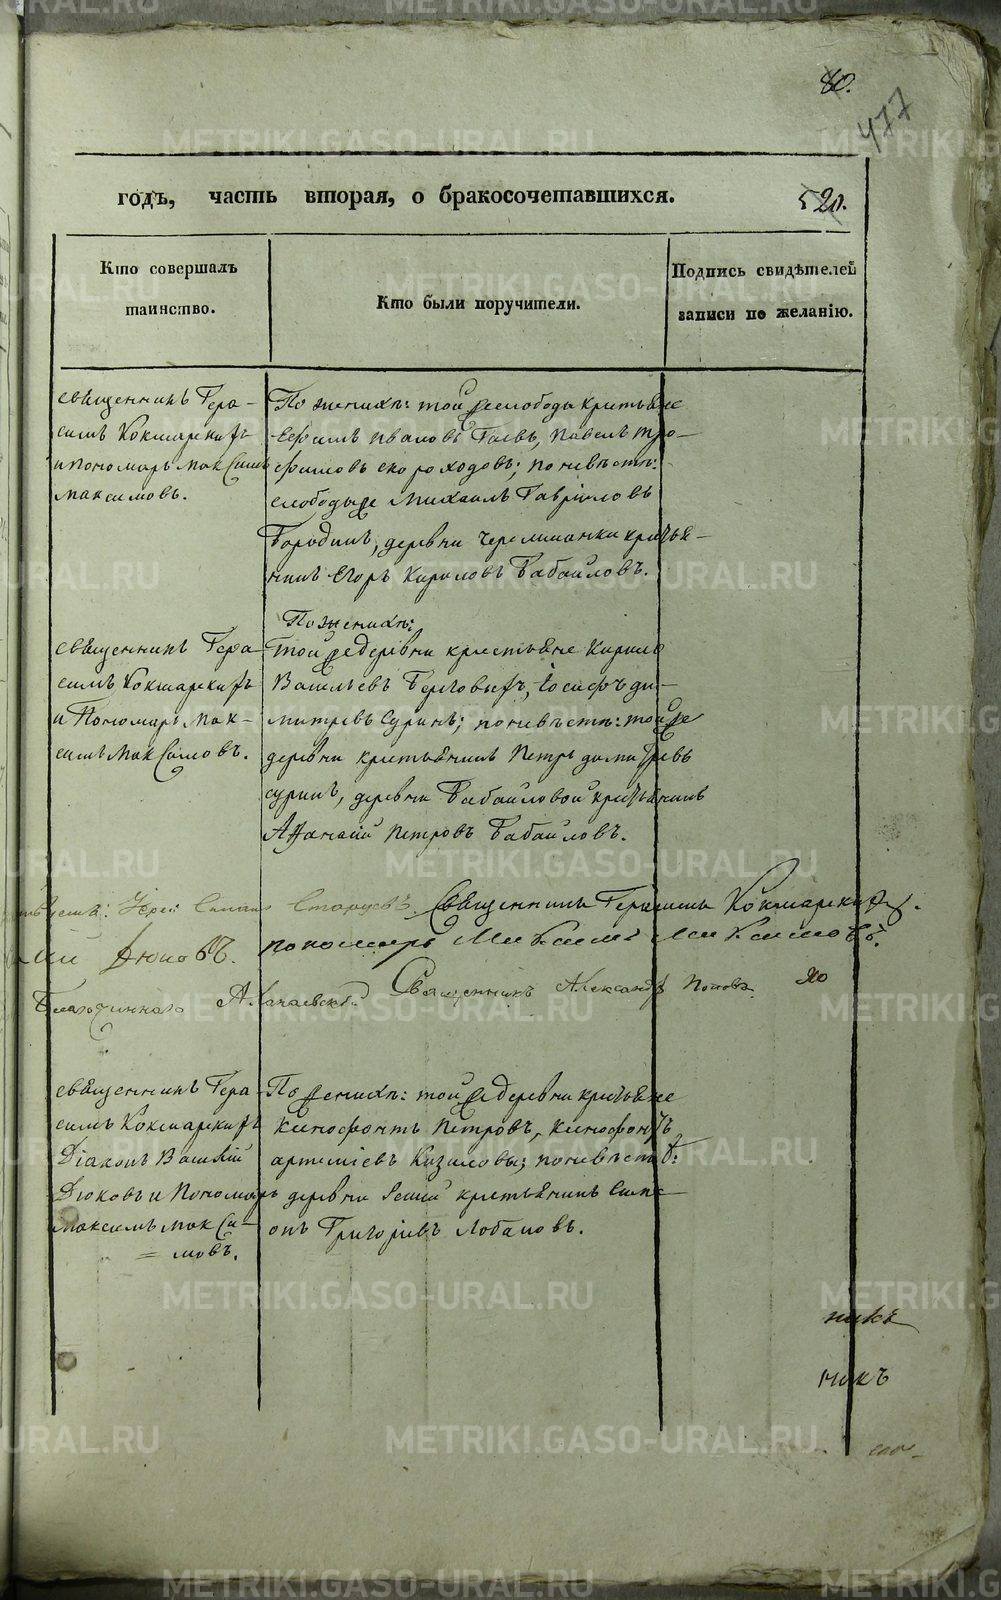 80.
477
годъ, часть вторая, о бракосочетавшихся.
520.
Кто совершалъ
таинство.
Кто были поручители.
Подпись свидѣтелей
записи по желанію.
священникъ Гера-
симъ Кокшарскихъ
и пономарь Максимъ
Максимовъ.
По женихѣ: той же слободы крестьяне
Ефимъ Ивановъ Гаевъ, Павелъ Тро-
фимовъ Скороходовъ; по невѣстѣ:
слободы же Михаилъ Гавриловъ
Бородинъ, деревни Черемшанки крестья-
нинъ Егоръ Кириловъ Бабаиловъ.
священникъ Гера-
симъ Кокшарскихъ
и Пономарь Мак-
симъ Максимовъ.
По женихѣ:
той же деревни крестьяне Кирило
Васильевъ Берговыхъ, Іосифъ Ди-
митревъ Суринъ; по невѣстѣ: той же
деревни крестьянинъ Петръ Димитревъ
Суринъ, деревни Бабаиловой крестьянинъ
Афанасій Петровъ Бабаиловъ.
Іерей Старцевъ. Священникъ Герасимъ Кокшарскихъ.
Дюковъ. пономарь Максимъ Максимовъ.
Благочиннаго Священникъ Александръ Поповъ.
священникъ Гера-
симъ Кокшарскихъ
Діаконъ Василій
Дюковъ и Пономарь
Максимъ Макси-
мовъ.
По женихѣ: той же деревни крестьяне
Ксенофонтъ Петровъ, Ксенофонтъ
Артеміевъ Казиловы; по невѣстѣ:
деревни крестьянинъ Симе-
онъ Григоріевъ Лобановъ.
никъ
никъ
METRIKI.GASO-URAL.RU